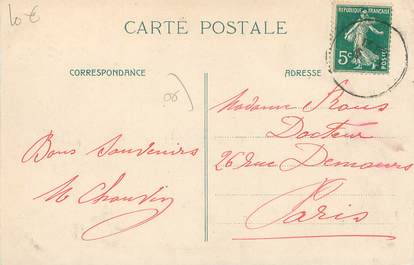 10 €
CARTE POSTALE
REPUBLIQUE FRANÇAISE
5c
POSTES
CORRESPONDANCE
ADRESSE
Madame Rous
Docteur
26 Rue Demours
Paris
Bons Souvenirs
M Chauvin